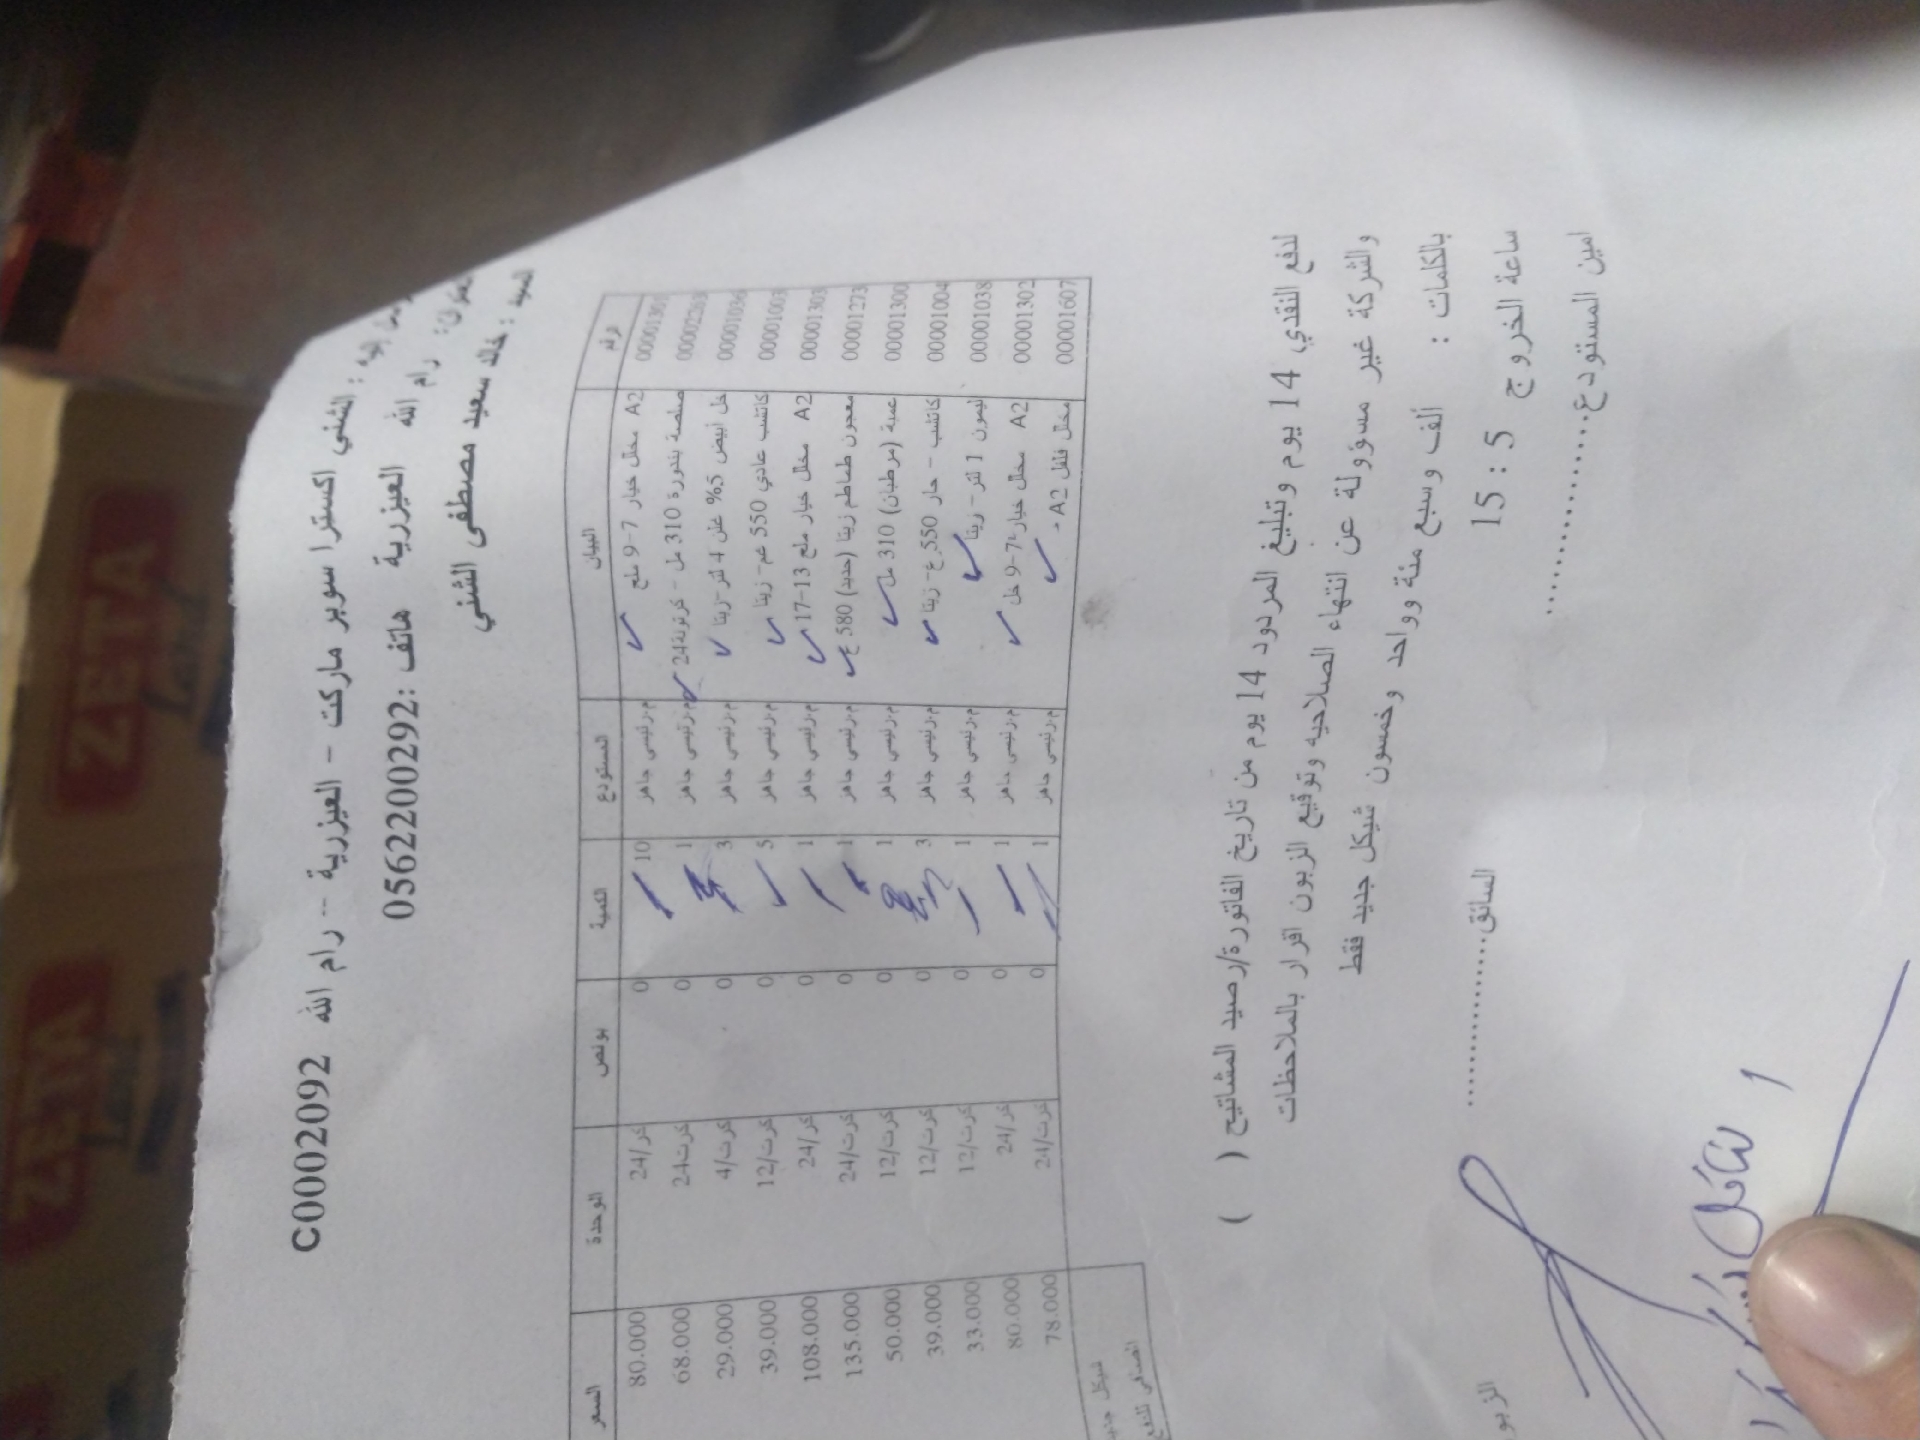 الشني اكسترا سوبر ماركت - العيزرية -- رام الله C0002092
رام الله العيزرية هاتف :0562200292
السيد : خالد سعيد مصطفى الشني
الرقم البيان المستودع الكمية بونص الوحدة السعر
00001301 A2 مخلل خيار 7-9 ملح م.رئيسي جاهز 10 0 كر/24 80.000
صلصة بندورة 310 مل - كرتونة24 م.رئيسي جاهز 1 0 كرت24 68.000
00001036 خل أبيض 5% غلن 4 لتر-زيتا م.رئيسي جاهز 3 0 كرت/4 29.000
00001003 كاتشب عادي 550 غم- زيتا م.رئيسي جاهز 5 0 كرت/12 39.000
00001303 A2 مخلل خيار ملح 13-17 م.رئيسي جاهز 1 0 كر/24 108.000
00001273 معجون طماطم زيتا (حديد) 580 غ م.رئيسي جاهز 1 0 كرت/24 135.000
00001300 عمبة (مرطبان) 310 مل م.رئيسي جاهز 1 0 كرت/12 50.000
00001004 كاتشب - حار 550غ- زيتا م.رئيسي جاهز 3 0 كرت/12 39.000
00001038 ليمون 1 لتر- زيتا م.رئيسي جاهز 1 0 كرت/12 33.000
00001302 A2 مخلل خيار 7-9 خل م.رئيسي جاهز 1 0 كر/24 80.000
00001607 مخلل فلفل A2 - م.رئيسي جاهز 1 0 كرت/24 78.000
شيكل جديد
الصافي للدفع
لدفع النقدي 14 يوم وتبليغ المردود 14 يوم من تاريخ الفاتورة/رصيد المشاتيح ( )
والشركة غير مسؤولة عن انتهاء الصلاحيه وتوقيع الزبون اقرار بالملاحظات
بالكلمات : ألف وسبع مئة وواحد وخمسون شيكل جديد فقط
ساعة الخروج 5 : 15
امين المستودع............... السائق............... الزبو